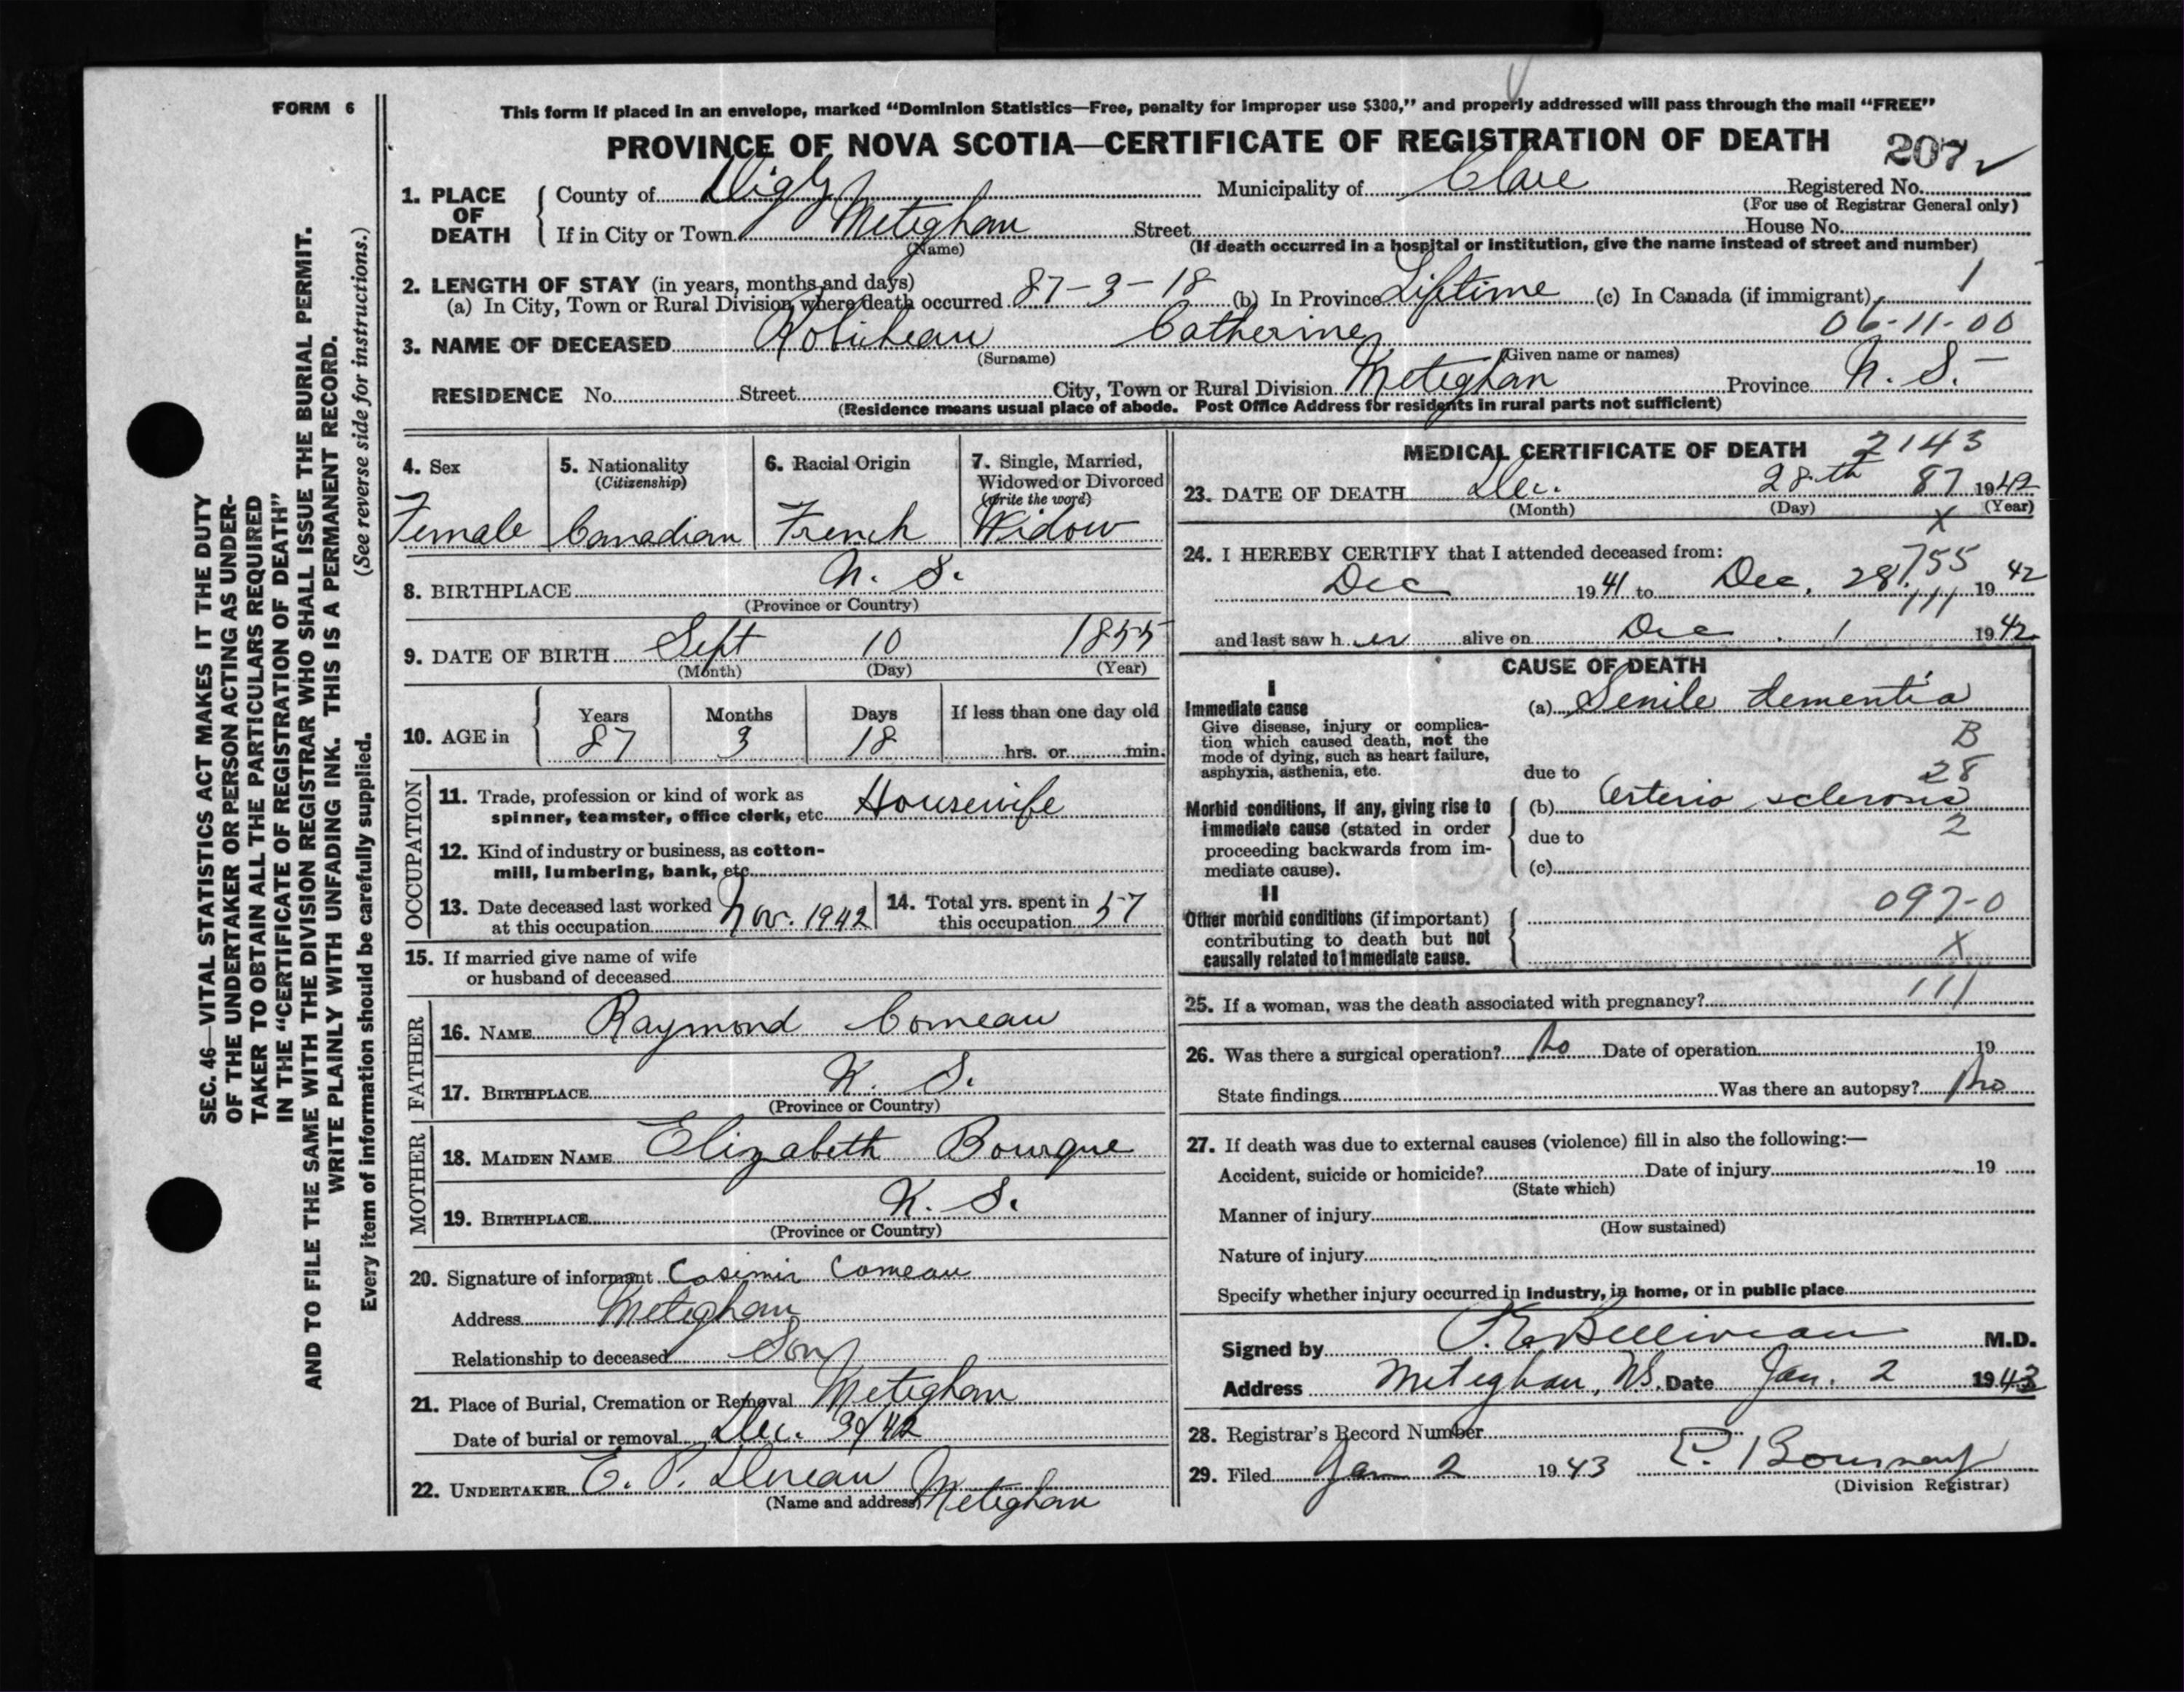 FORM 6
This form if placed in an envelope, marked “Dominion Statistics—Free, penalty for improper use $300,” and properly addressed will pass through the mail “FREE”
PROVINCE OF NOVA SCOTIA—CERTIFICATE OF REGISTRATION OF DEATH
207 ✓
1. PLACE OF DEATH
County of Digby Municipality of Clare Registered No.
(For use of Registrar General only)
If in City or Town Meteghan Street House No.
(Name) (If death occurred in a hospital or institution, give the name instead of street and number)
2. LENGTH OF STAY (in years, months and days)
(a) In City, Town or Rural Division where death occurred 87-3-18 (b) In Province Lifetime (c) In Canada (if immigrant) 1
06-11-00
3. NAME OF DECEASED Robicheau Catherine
(Surname) (Given name or names)
RESIDENCE No. Street City, Town or Rural Division Meteghan Province N. S.
(Residence means usual place of abode. Post Office Address for residents in rural parts not sufficient)
4. Sex
Female
5. Nationality
(Citizenship)
Canadian
6. Racial Origin
French
7. Single, Married,
Widowed or Divorced
(write the word)
Widow
8. BIRTHPLACE N. S.
(Province or Country)
9. DATE OF BIRTH Sept 10 1855
(Month) (Day) (Year)
10. AGE in
Years Months Days If less than one day old
87 3 18 hrs. or min.
OCCUPATION
11. Trade, profession or kind of work as
spinner, teamster, office clerk, etc. Housewife
12. Kind of industry or business, as cotton-
mill, lumbering, bank, etc.
13. Date deceased last worked
at this occupation Nov. 1942
14. Total yrs. spent in
this occupation 57
15. If married give name of wife
or husband of deceased
FATHER
16. NAME Raymond Comeau
17. BIRTHPLACE N. S.
(Province or Country)
MOTHER
18. MAIDEN NAME Elizabeth Bourque
19. BIRTHPLACE N. S.
(Province or Country)
20. Signature of informant Casimir Comeau
Address Meteghan
Relationship to deceased Son
21. Place of Burial, Cremation or Removal Meteghan
Date of burial or removal Dec. 30/42
22. UNDERTAKER E. P. Deveau Meteghan
(Name and address)
MEDICAL CERTIFICATE OF DEATH 2143
23. DATE OF DEATH Dec. 28th 87 1942
(Month) (Day) (Year)
X
24. I HEREBY CERTIFY that I attended deceased from:
755
Dec 1941 to Dec. 28, 1942
111
and last saw her alive on Dec. 1 1942
CAUSE OF DEATH
I
Immediate cause
Give disease, injury or complica-
tion which caused death, not the
mode of dying, such as heart failure,
asphyxia, asthenia, etc.
(a) Senile dementia
B
28
due to
Morbid conditions, if any, giving rise to
immediate cause (stated in order
proceeding backwards from im-
mediate cause).
(b) Arterio sclerosis
2
due to
(c)
II
097-0
Other morbid conditions (if important)
contributing to death but not
causally related to immediate cause.
X
25. If a woman, was the death associated with pregnancy? 111
26. Was there a surgical operation? No Date of operation 19
State findings Was there an autopsy? No
27. If death was due to external causes (violence) fill in also the following:—
Accident, suicide or homicide? Date of injury 19
(State which)
Manner of injury
(How sustained)
Nature of injury
Specify whether injury occurred in industry, in home, or in public place
Signed by P. E. Belliveau M.D.
Address Meteghan, N.S. Date Jan. 2 1943
28. Registrar's Record Number
29. Filed Jan 2 1943
(Division Registrar)
SEC. 46—VITAL STATISTICS ACT MAKES IT THE DUTY
OF THE UNDERTAKER OR PERSON ACTING AS UNDER-
TAKER TO OBTAIN ALL THE PARTICULARS REQUIRED
IN THE “CERTIFICATE OF REGISTRATION OF DEATH”
AND TO FILE THE SAME WITH THE DIVISION REGISTRAR WHO SHALL ISSUE THE BURIAL PERMIT.
WRITE PLAINLY WITH UNFADING INK. THIS IS A PERMANENT RECORD.
Every item of information should be carefully supplied. (See reverse side for instructions.)